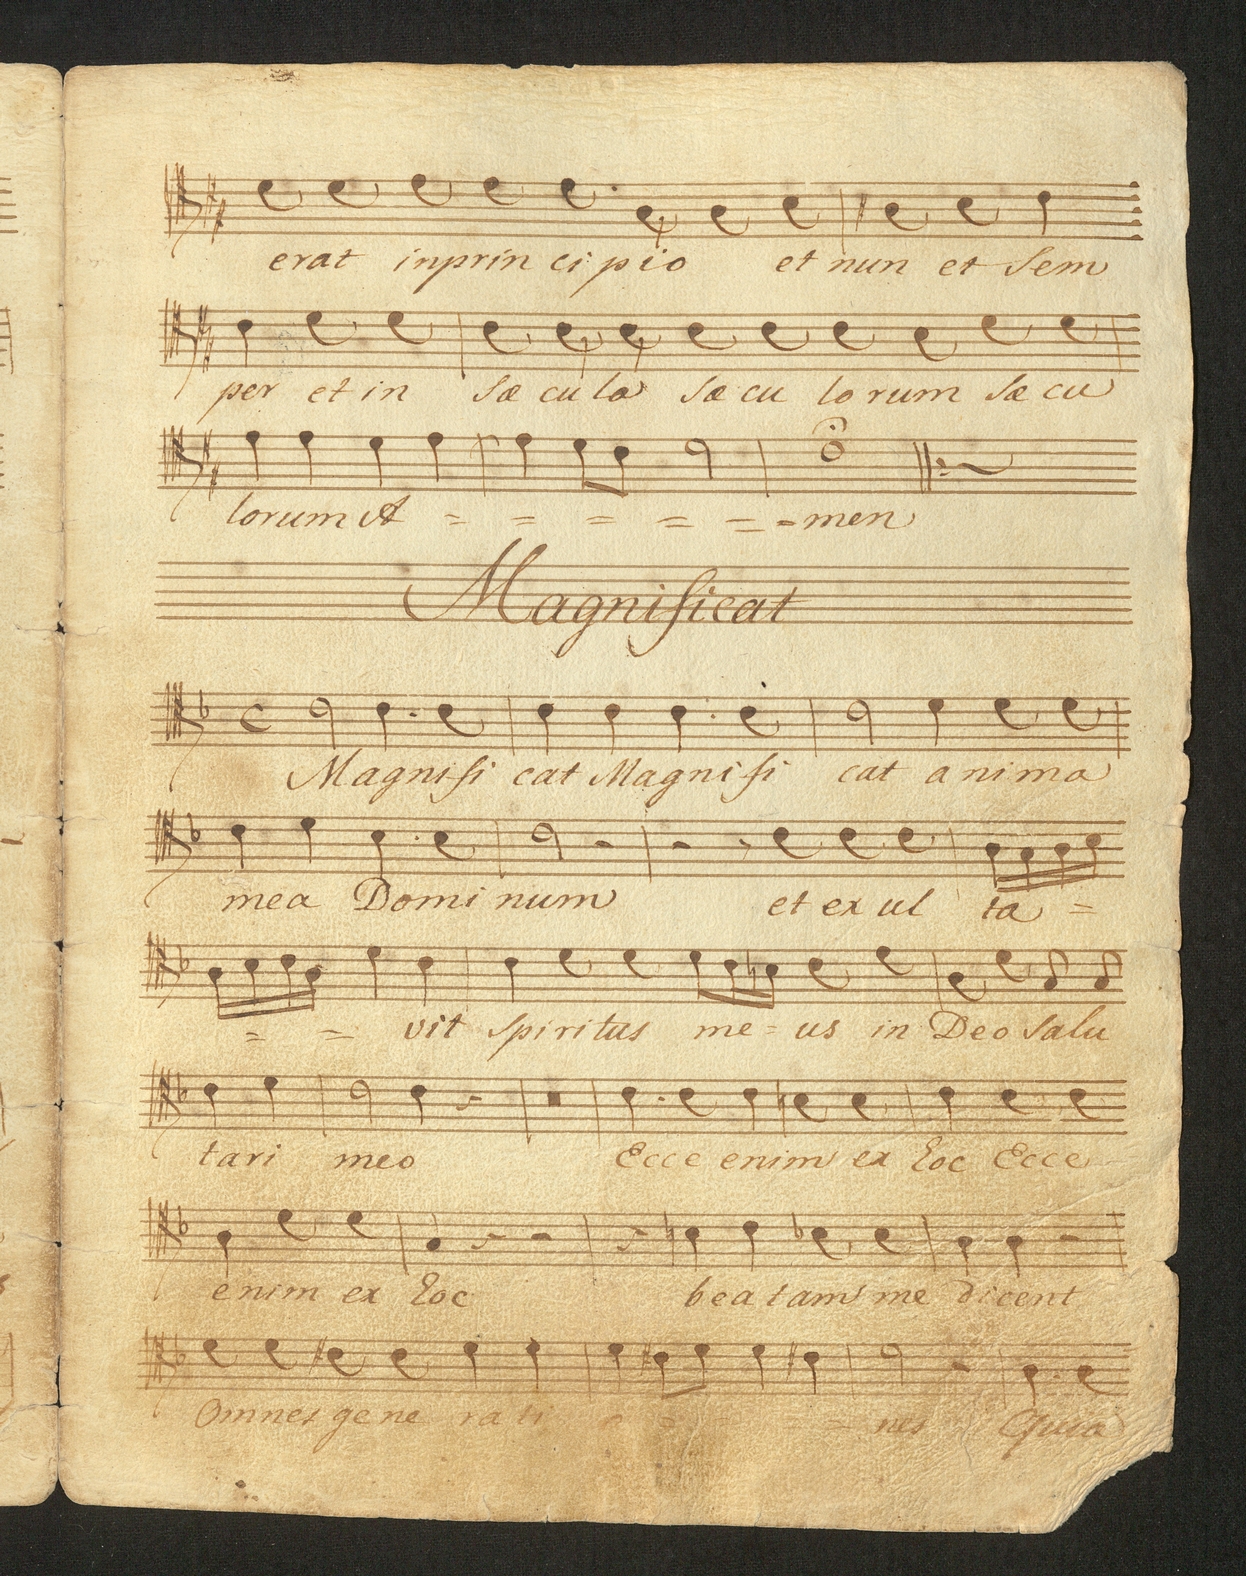 erat inprin ci pio et nun et sem
per et in sæ cu la sæ cu lo rum sæ cu
lorum A = = = = = = men
Magnificat
Magnifi cat Magnifi cat a ni ma
mea Domi num et ex ul ta =
= = vit spiritus me = us in Deo salu
tari meo Ecce enim ex hoc Ecce
enim ex hoc beatam me dicent
Omnes ge ne ra ti nes Quia